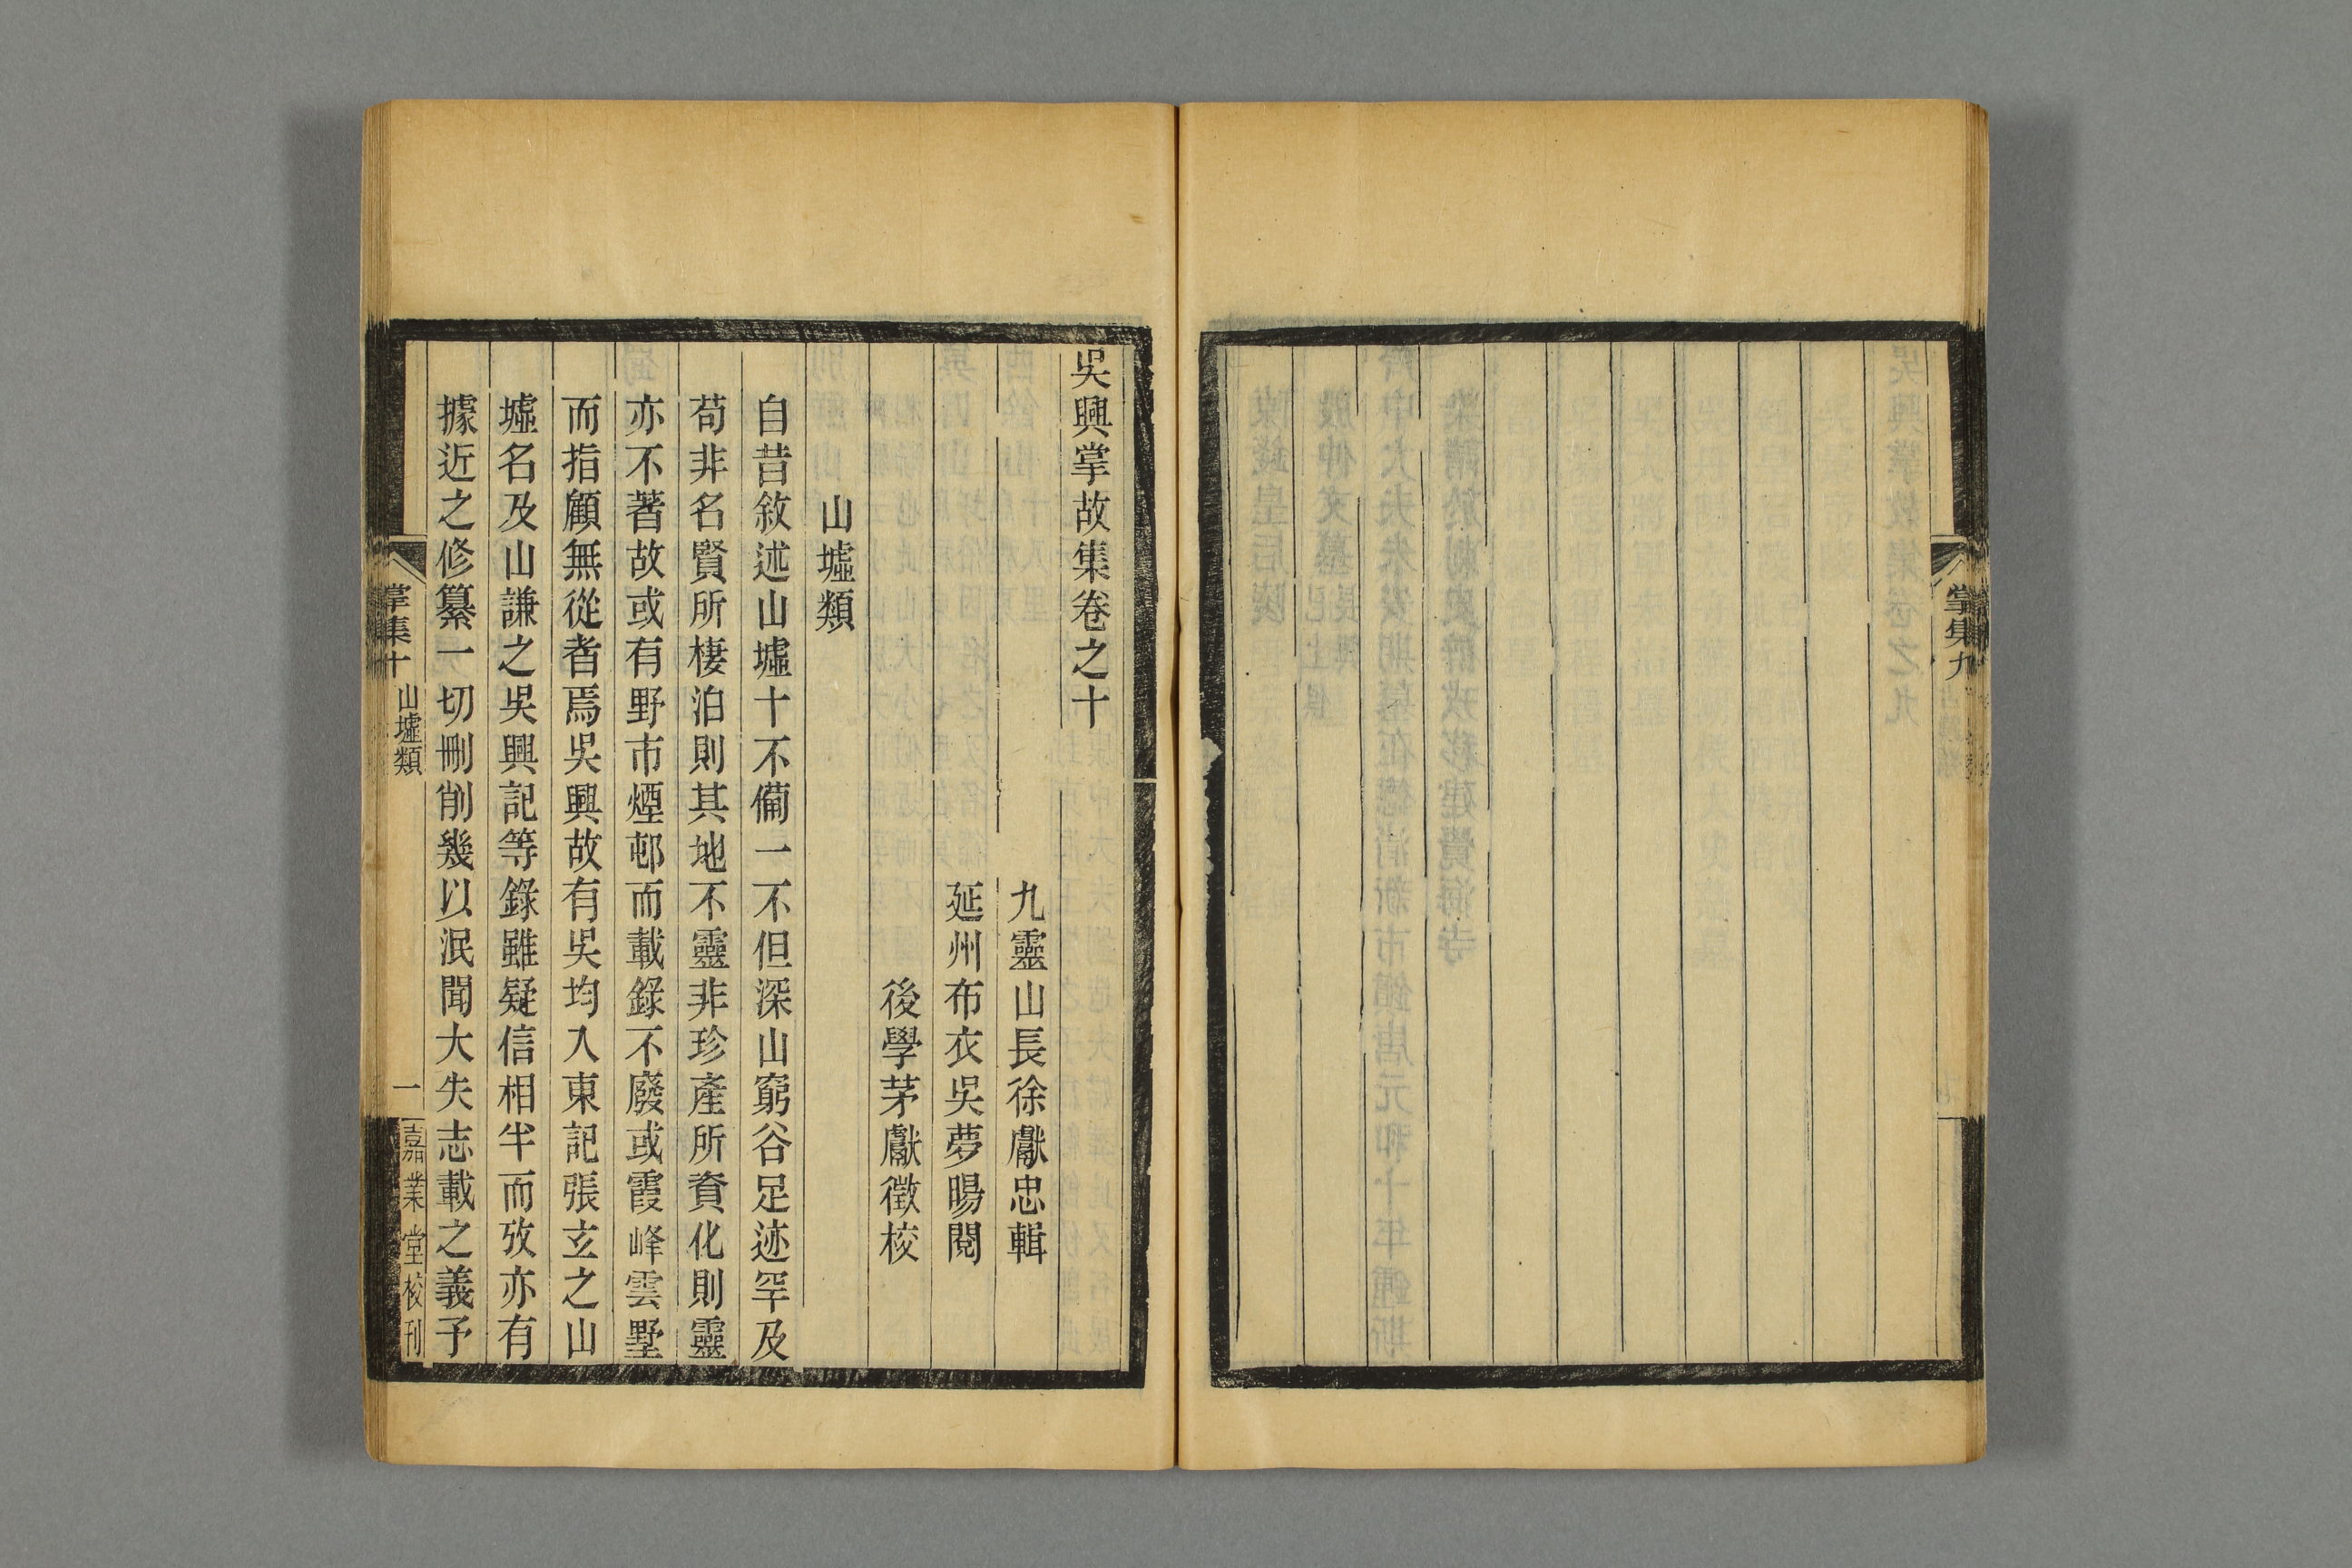 掌集九
吳興掌故集卷之十
九靈山長徐獻忠輯
延州布衣吳夢暘閱
後學茅獻徵校
山墟類
自昔敘述山墟十不備一不但深山窮谷足迹罕及
苟非名賢所棲泊則其地不靈非珍產所資化則靈
亦不著故或有野市煙邨而載錄不廢或霞峰雲墅
而指顧無從者焉吳興故有吳均入東記張玄之山
墟名及山謙之吳興記等錄雖疑信相半而攷亦有
據近之修纂一切刪削幾以泯聞大失志載之義予
掌集十
山墟類
一
嘉業堂校刊